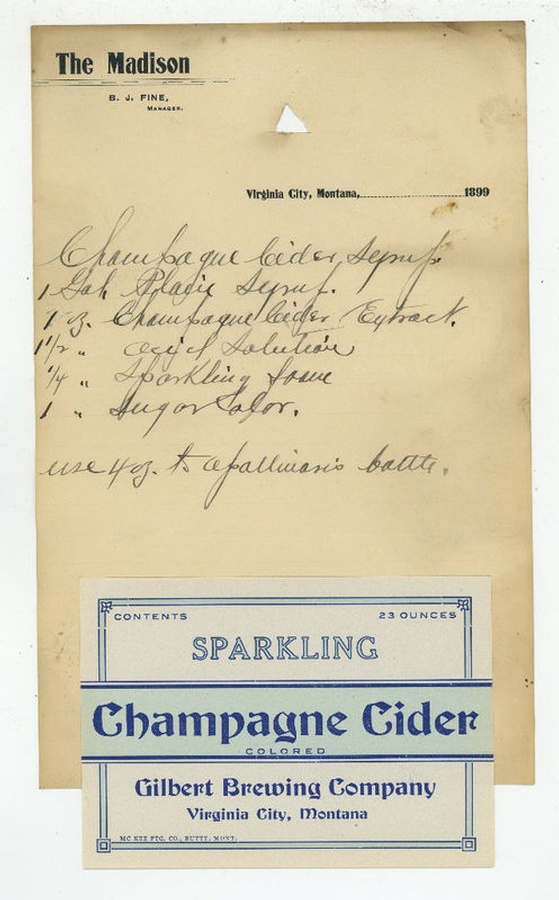 The Madison
B. J. FINE,
MANAGER.
Virginia City, Montana, 1899
Champagne Cider Syrup.
1 Gal. Plain Syrup.
1 oz. Champagne Cider Extract.
1 1/2 " acid Solution
1/4 " Sparkling foam
1 " Sugar Color.
use 4 oz. to apollinaris bottle.
CONTENTS 23 OUNCES
SPARKLING
Champagne Cider
COLORED
Gilbert Brewing Company
Virginia City, Montana
MC KEE PTG. CO., BUTTE, MONT.